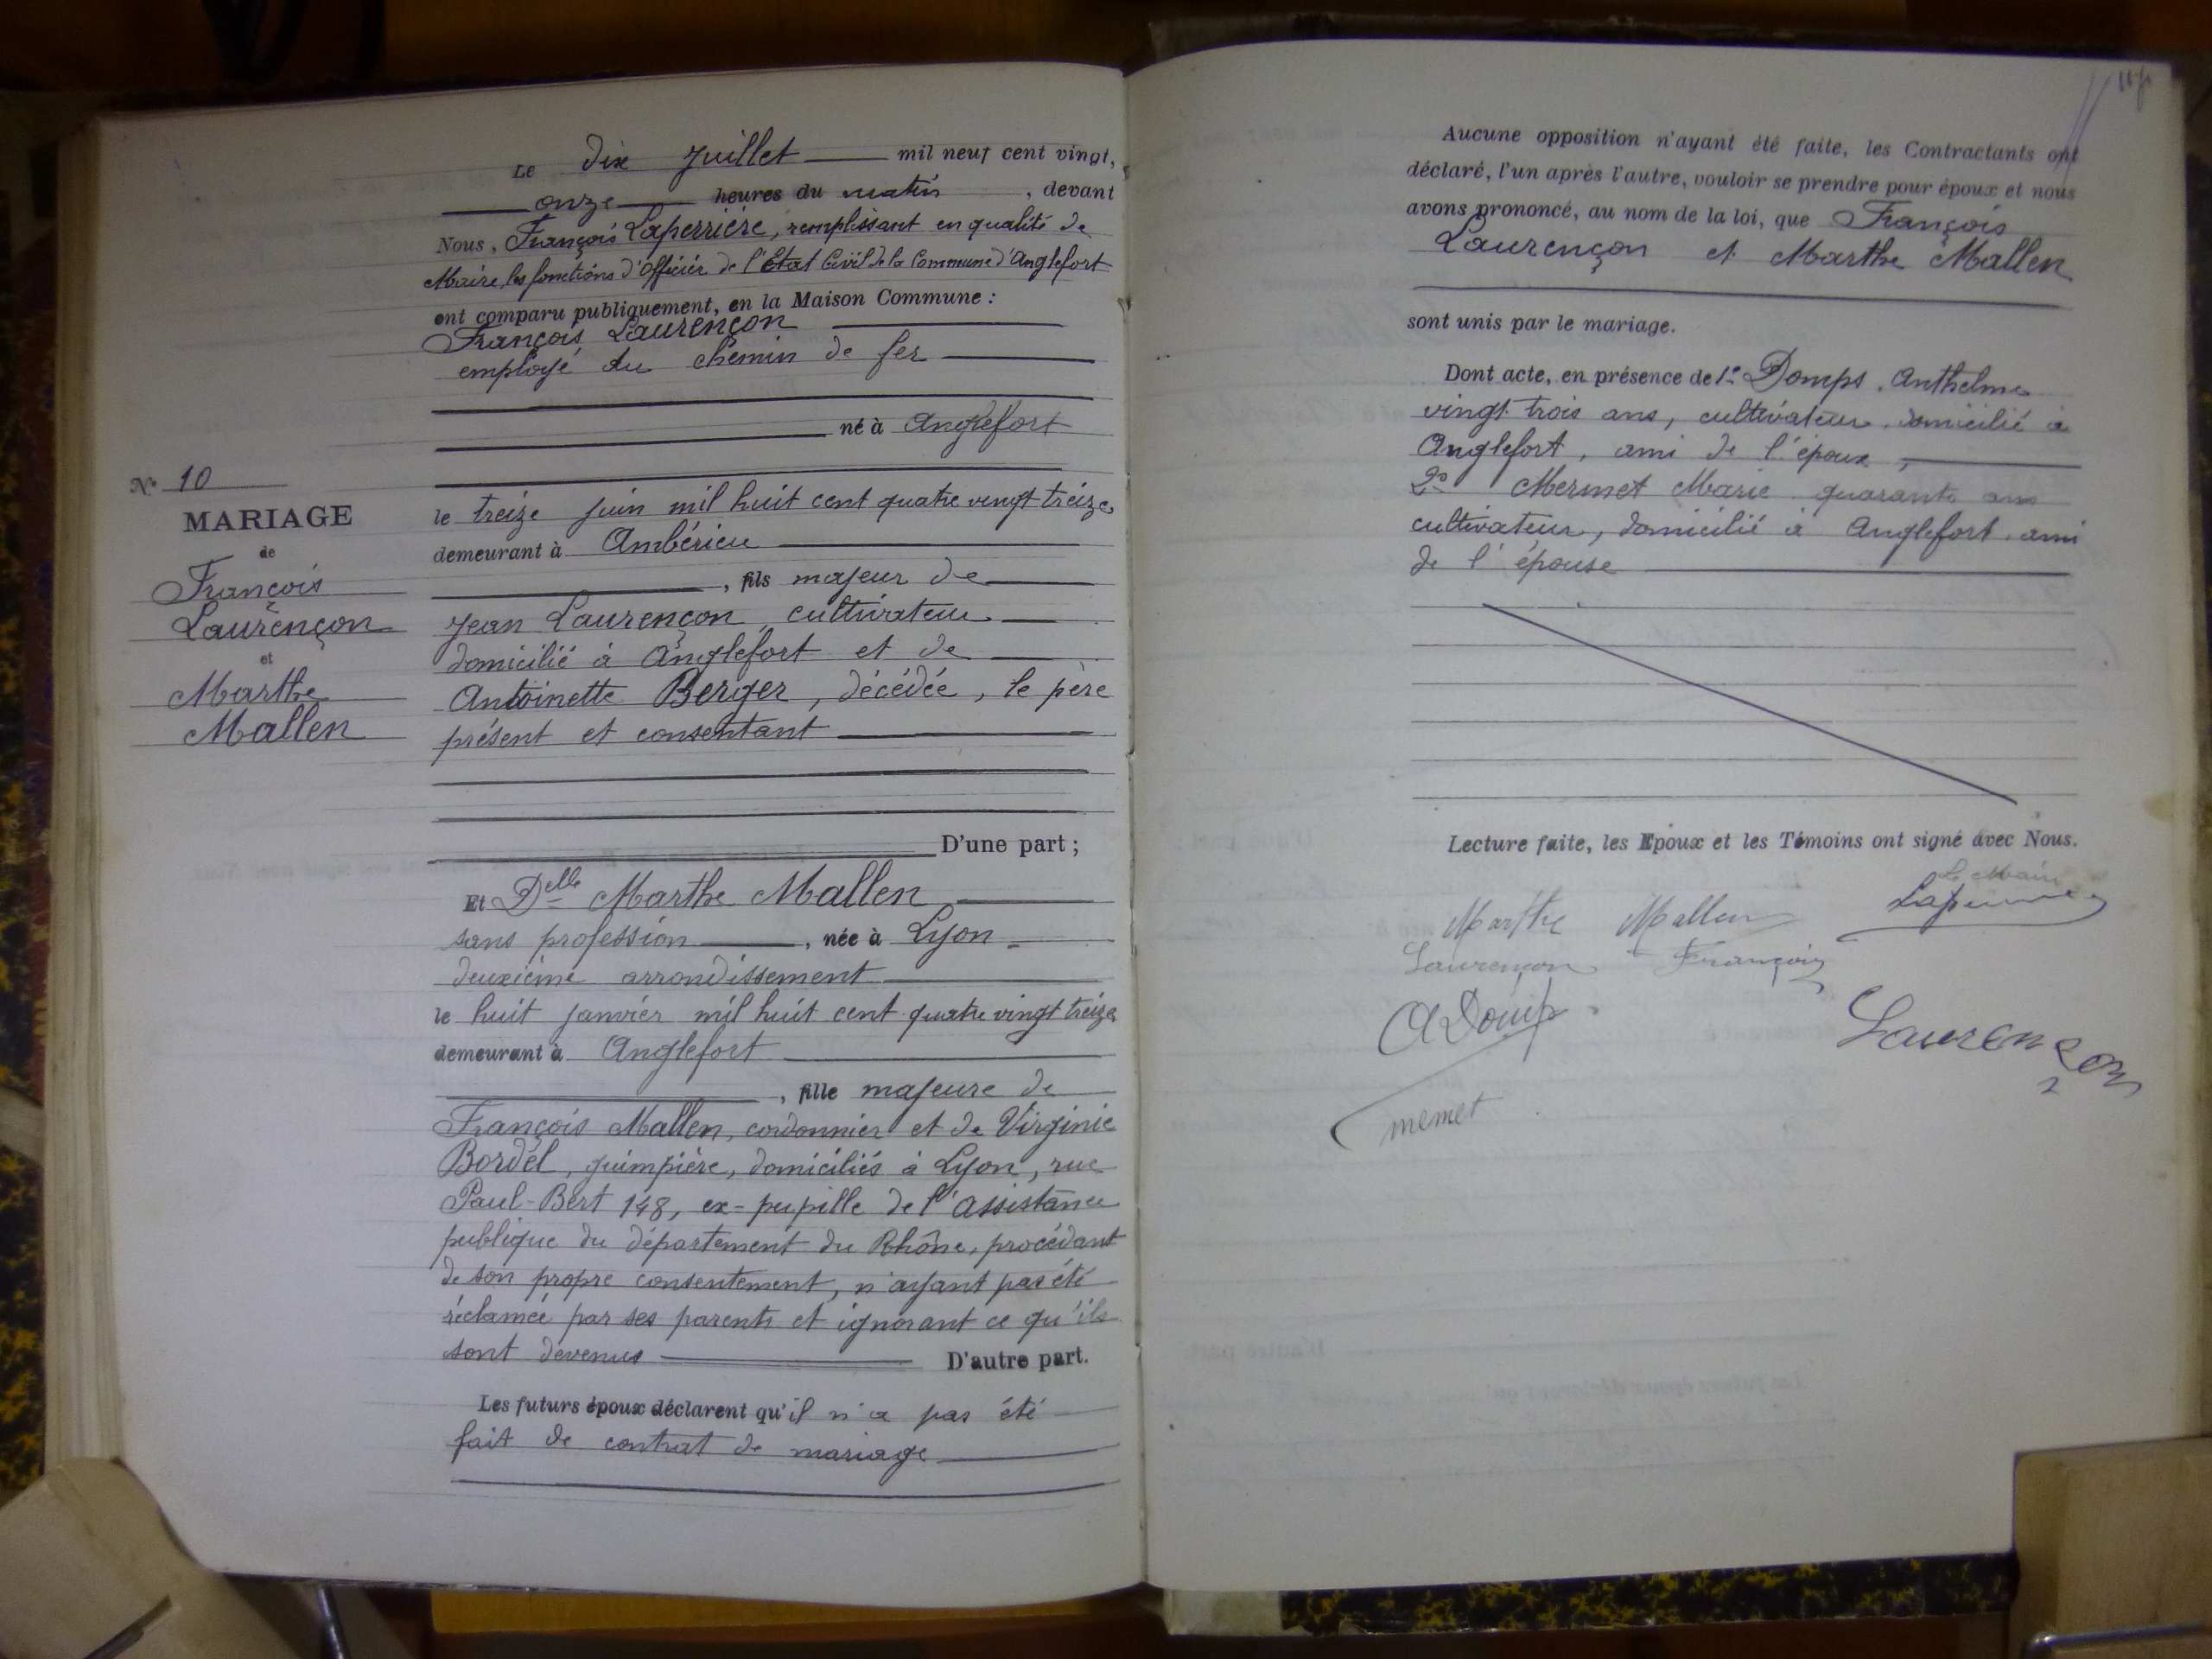 Le dix Juillet mil neuf cent vingt,
onze heures du matin, devant
Nous, François Laperrière, remplissant en qualité de
Maire, les fonctions d'Officier de l'État Civil de la Commune d'Anglefort
ont comparu publiquement, en la Maison Commune :
François Laurençon
employé du chemin de fer
né à Anglefort
le treize juin mil huit cent quatre vingt treize
demeurant à Ambérieu
, fils majeur de
Jean Laurençon, cultivateur
domicilié à Anglefort et de
Antoinette Berger, décédée, le père
présent et consentant
D'une part ;
Et Delle Marthe Mallen
sans profession, née à Lyon
deuxième arrondissement
le huit janvier mil huit cent quatre vingt treize
demeurant à Anglefort
, fille majeure de
François Mallen, cordonnier et de Virginie
Bordel, guimpière, domiciliés à Lyon, rue
Paul-Bert 148, ex-pupille de l'Assistance
publique du département du Rhône, procédant
de son propre consentement, n'ayant pas été
réclamée par ses parents et ignorant ce qu'ils
sont devenus D'autre part.
Les futurs époux déclarent qu'il n'a pas été
fait de contrat de mariage
No 10
MARIAGE
de
François
Laurençon
et
Marthe
Mallen
Aucune opposition n'ayant été faite, les Contractants ont
déclaré, l'un après l'autre, vouloir se prendre pour époux et nous
avons prononcé, au nom de la loi, que François
Laurençon et Marthe Mallen
sont unis par le mariage.
Dont acte, en présence de 1° Domps. Anthelme
vingt trois ans, cultivateur, domicilié à
Anglefort, ami de l'époux,
2° Mermet Marie quarante ans
cultivateur, domicilié à Anglefort. ami
de l'épouse
Lecture faite, les Epoux et les Témoins ont signé avec Nous.
Le Maire
Marthe Mallen Laperrière
Laurençon François
A Domp
Laurençon
memet